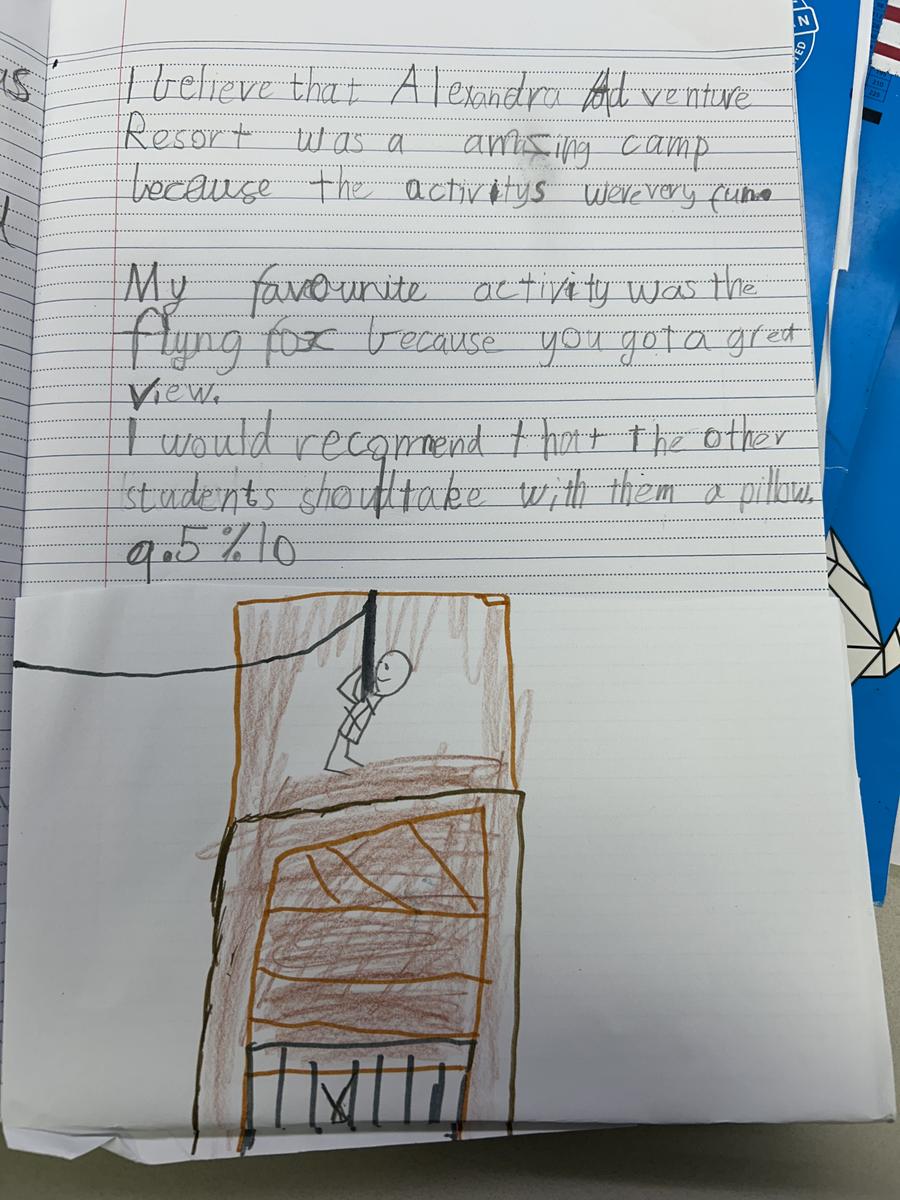 I believe that Alexandra Adventure
Resort was a amazing camp
because the activitys were very fun.
My favourite activity was the
flyng fox because you got a gret
view.
I would recommend that the other
students shoud take with them a pillow.
9.5 % 10